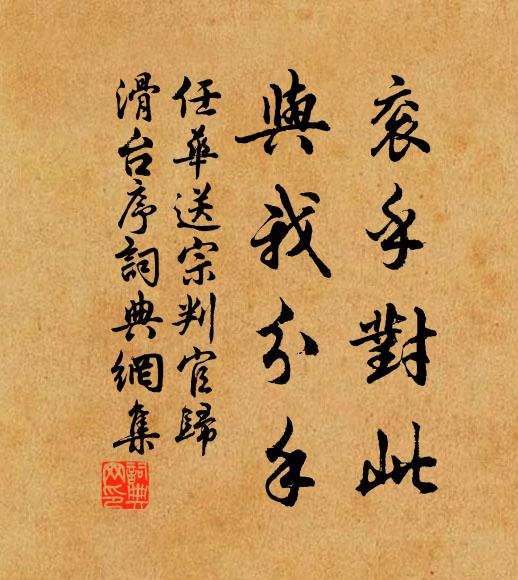 袞乎對此
與我分手
任華送宗判官歸
滑台序詞典網集
詞典
网印